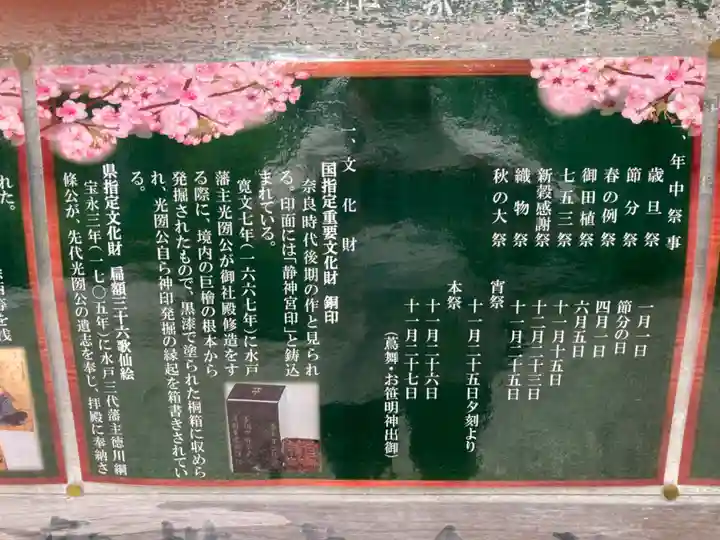 、年中祭事
歳旦祭　一月一日
節分祭　節分の日
春の例祭　四月一日
御田植祭　六月五日
七五三祭　十一月十五日
新穀感謝祭　十二月二十三日
織物祭　十一月二十五日
秋の大祭
宵祭　十一月二十五日夕刻より
本祭　十一月二十六日
十一月二十七日
（蔦舞・お笹明神出御）
一、文化財
国指定重要文化財　銅印
奈良時代後期の作と見られ
る。印面には「静神宮印」と鋳込
まれている。
寛文七年（一六六七年）に水戸
藩主光圀公が御社殿修造をす
る際に、境内の巨檜の根本から
発掘されたもので、黒漆で塗られた桐箱に収めら
れ、光圀公自ら神印発掘の縁起を箱書きされてい
る。
県指定文化財　扁額三十六歌仙絵
宝永三年（一七〇五年）に水戸三代藩主徳川綱
條公が、先代光圀公の遺志を奉じ、拝殿に奉納さ
れた。